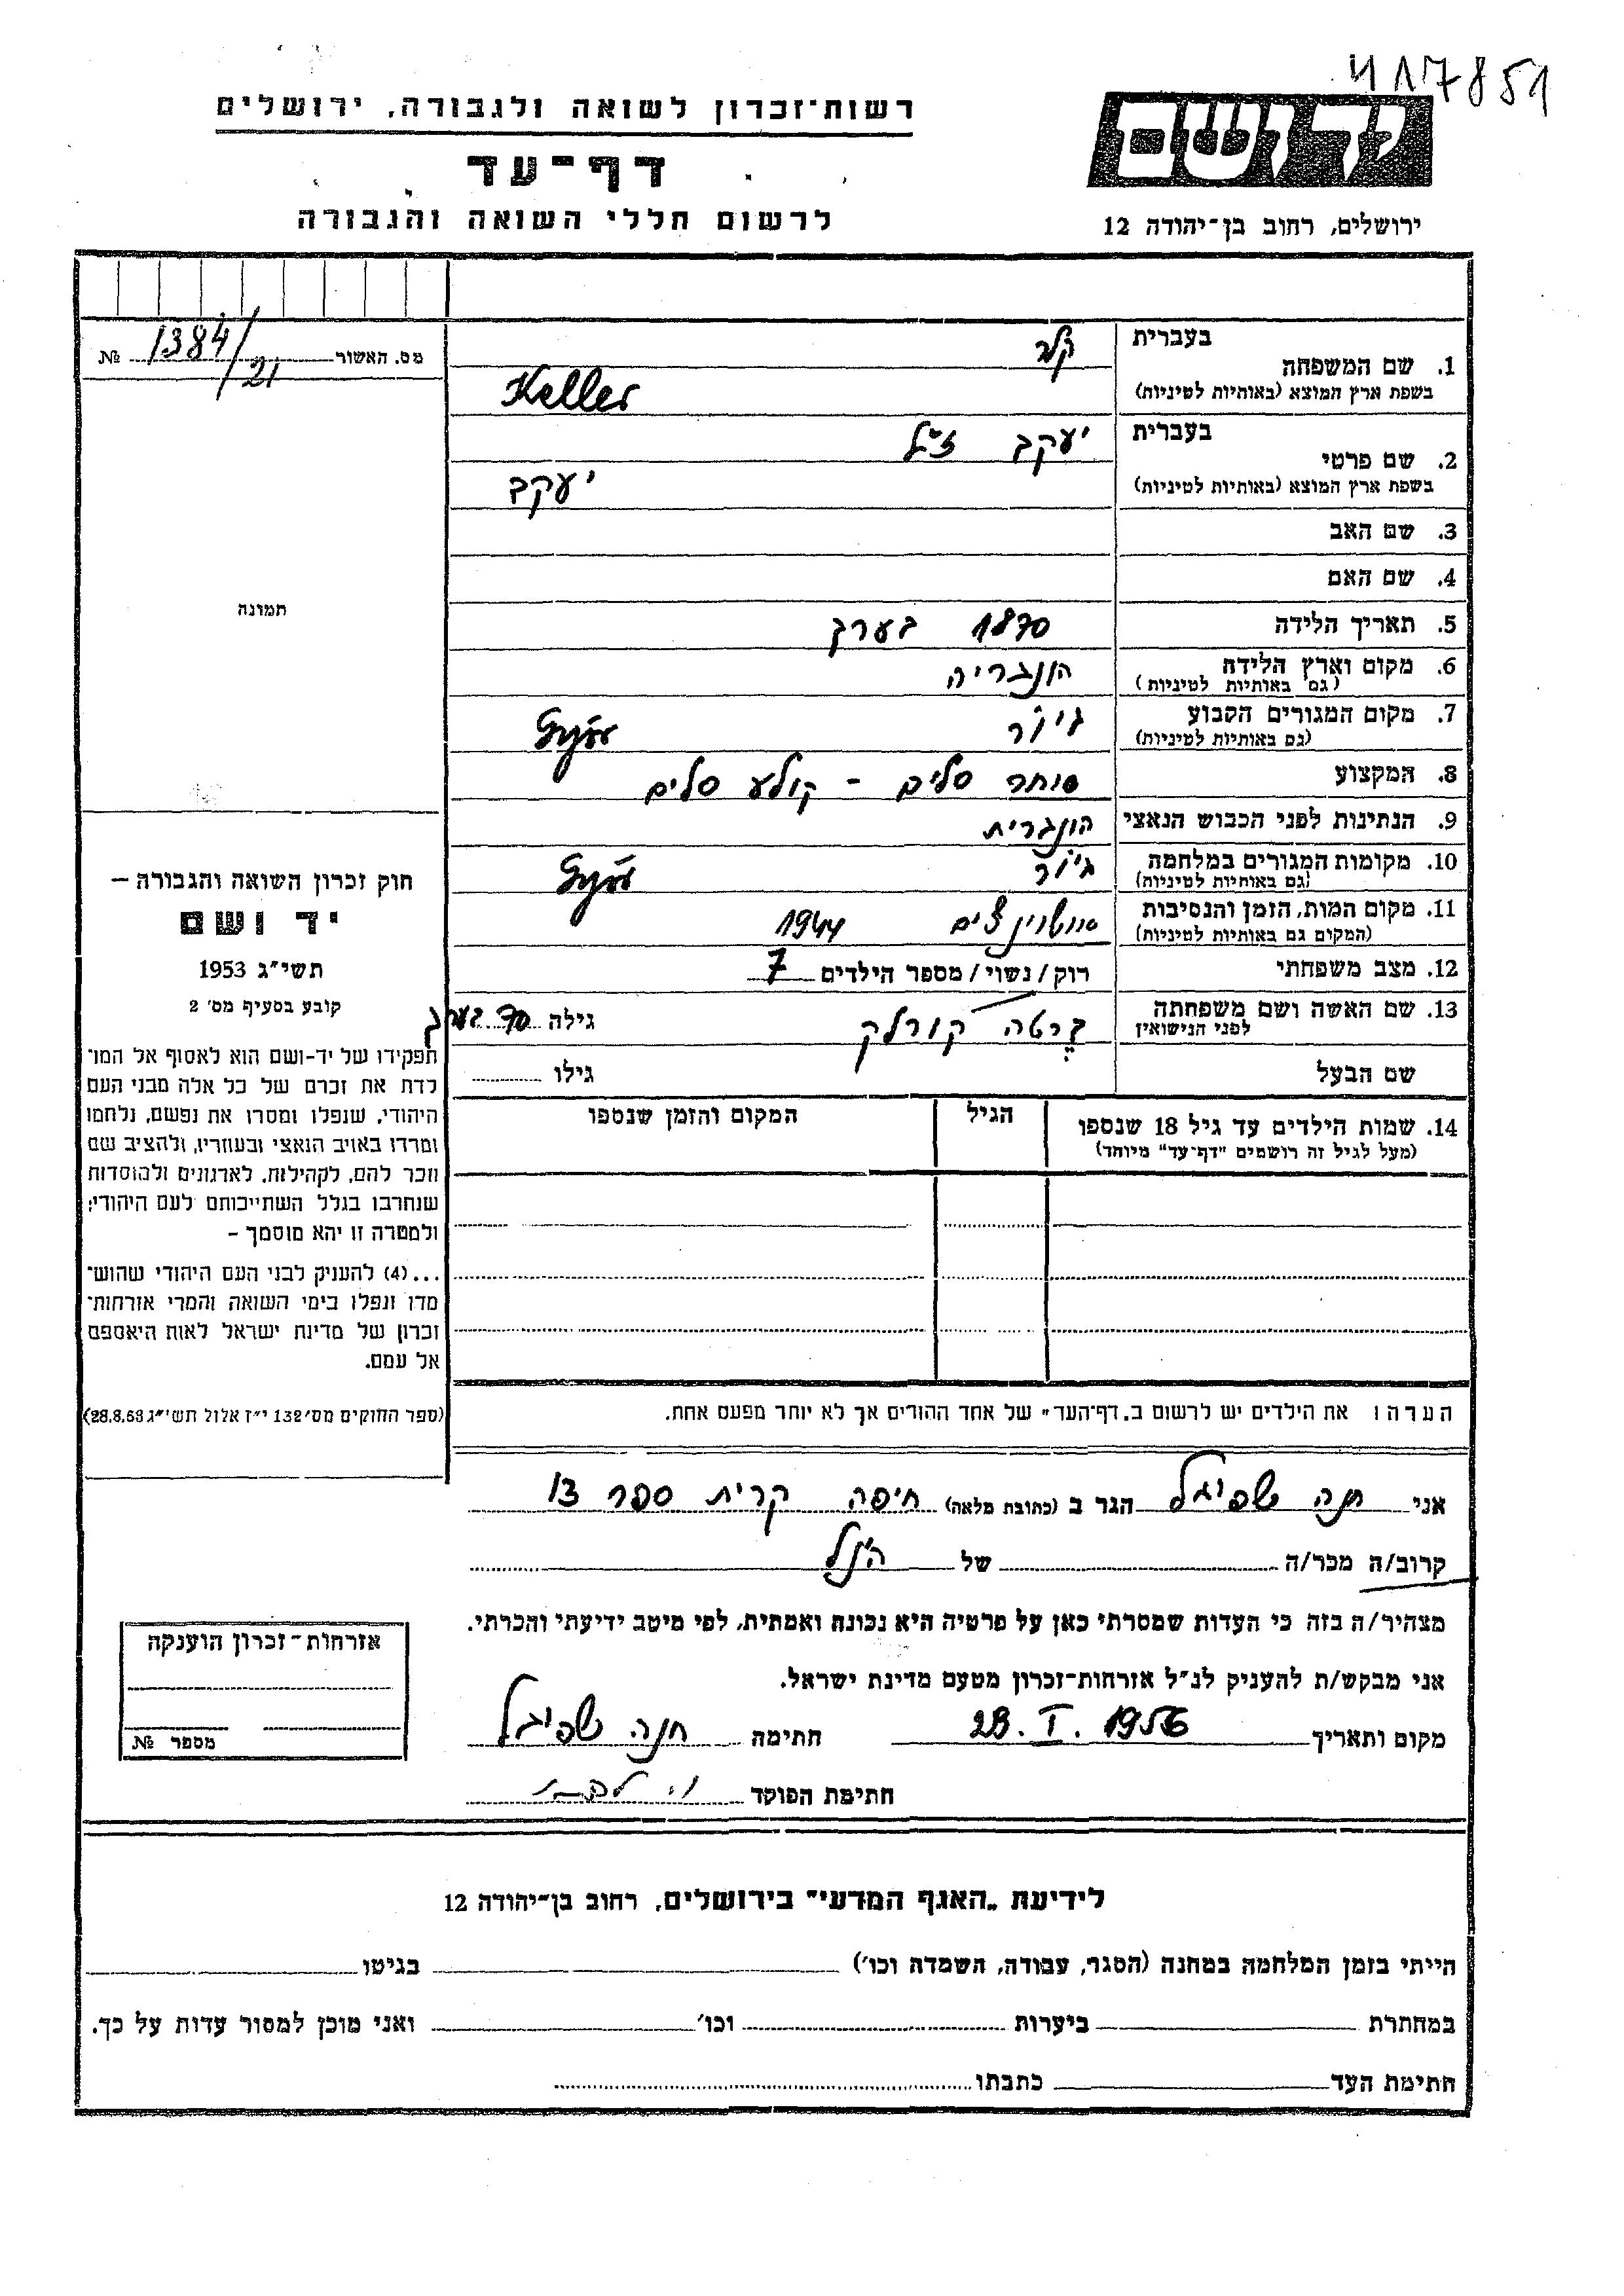 417851
רשות־זכרון לשואה ולגבורה, ירושלים
דף־עד
לרשום חללי השואה והגבורה
יד ושם
ירושלים, רחוב בן־יהודה 12
מס. האשור 1384/21 №
בעברית קלר
1. שם המשפחה
בשפת ארץ המוצא (באותיות לטיניות) Keller
בעברית יעקב ז"ל
2. שם פרטי
בשפת ארץ המוצא (באותיות לטיניות) יעקב
3. שם האב
4. שם האם
תמונה
5. תאריך הלידה 1870 בערך
6. מקום וארץ הלידה הונגריה
(גם באותיות לטיניות)
7. מקום המגורים הקבוע גיור Győr
(גם באותיות לטיניות)
8. המקצוע סוחר סלים - קולע סלים
9. הנתינות לפני הכבוש הנאצי הונגרית
10. מקומות המגורים במלחמה גיור Győr
(גם באותיות לטיניות)
11. מקום המות, הזמן והנסיבות 1944
(המקום גם באותיות לטיניות)
12. מצב משפחתי רוק/נשוי/מספר הילדים 7
13. שם האשה ושם משפחתה ברטה קורלק גילה 70 בערך
לפני הנישואין
שם הבעל גילו
14. שמות הילדים עד גיל 18 שנספו הגיל המקום והזמן שנספו
(מעל לגיל זה רושמים "דף־עד" מיוחד)
חוק זכרון השואה והגבורה –
יד ושם
תשי"ג 1953
קובע בסעיף מס' 2
תפקידו של יד-ושם הוא לאסוף אל המו־
לדת את זכרם של כל אלה מבני העם
היהודי, שנפלו ומסרו את נפשם, נלחמו
ומרדו באויב הנאצי ובעוזריו, ולהציב שם
וזכר להם, לקהילות, לארגונים ולמוסדות
שנחרבו בגלל השתייכותם לעם היהודי;
ולמטרה זו יהא מוסמך –
...(4) להעניק לבני העם היהודי שהוש־
מדו ונפלו בימי השואה והמרי אזרחות־
זכרון של מדינת ישראל לאות היאספם
אל עמם.
(ספר החוקים מס' 132 י"ז אלול תשי"ג 28.8.53)
הערה: את הילדים יש לרשום ב„דף־העד" של אחד ההורים אך לא יותר מפעם אחת.
אני חנה שפיגל הגר ב (כתובת מלאה) חיפה קרית ספר 13
קרוב/ה מכר/ה של הנ"ל
מצהיר/ה בזה כי העדות שמסרתי כאן על פרטיה היא נכונה ואמתית, לפי מיטב ידיעתי והכרתי.
אני מבקש/ת להעניק לנ"ל אזרחות־זכרון מטעם מדינת ישראל.
מקום ותאריך 28. I. 1956 חתימה חנה שפיגל
חתימת הפוקד
אזרחות־זכרון הוענקה
מספר №
לידיעת „האגף המדעי" בירושלים, רחוב בן־יהודה 12
הייתי בזמן המלחמה במחנה (הסגר, עבודה, השמדה וכו') בגיטו
במחתרת ביערות וכו' ואני מוכן למסור עדות על כך.
חתימת העד כתבתו